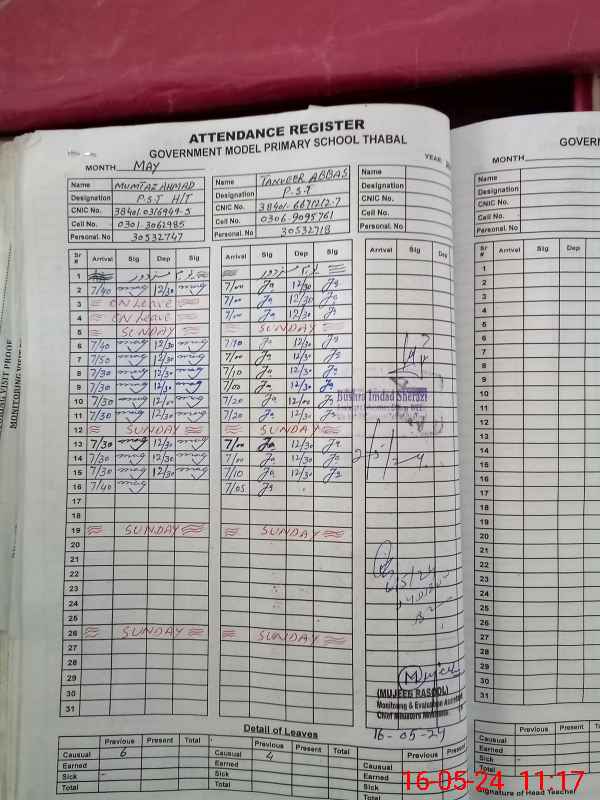 ATTENDANCE REGISTER
GOVERNMENT MODEL PRIMARY SCHOOL THABAL
MONTH MAY
YEAR
Name MUMTAZ AHMAD
Designation P.S.T H/T
CNIC No. 38401-0316949-5
Cell No. 0301-3061985
Personal. No 30532747
Name TANVEER ABBAS
Designation P.S.T
CNIC No. 38401-6671212-7
Cell No. 0306-9095761
Personal. No 30532718
Name
Designation
CNIC No.
Cell No.
Personal. No
Sr # Arrival Sig Dep Sig Arrival Sig Dep Sig Arrival Sig Dep
1
2 7/40 12/30 7/00 12/30
3 ON Leave 7/00 12/30
4 ON Leave 7/00 12/30
5 SUNDAY SUNDAY
6 7/40 12/30 7/10 12/30
7 7/50 12/30 7/00 12/30
8 7/30 12/30 7/10 12/30
9 7/30 12/30 7/00 12/30
10 7/30 12/00 7/20 12/00
11 7/30 12/30 7/20 12/30
12 SUNDAY SUNDAY
13 7/30 12/30 7/00 12/30
14 7/30 12/30 7/00 12/30
15 7/30 12/30 7/10 12/30
16 7/40 7/05
17
18
19 SUNDAY SUNDAY
20
21
22
23
24
25
26 SUNDAY SUNDAY
27
28
29
30
31
Bushra Imdad Sherazi
Mujeeb
(MUJEEB RASOOL)
Monitoring & Evaluation
Chief Ministers
16-05-24
Detail of Leaves
Previous Present Total
Causual 6
Earned
Sick -
Total
Previous Present Total
Causual 4
Earned
Sick
Total
MONTH
Name
Designation
CNIC No.
Cell No.
Personal. No
Sr # Arrival Sig
1
2
3
4
5
6
7
8
9
10
11
12
13
14
15
16
17
18
19
20
21
22
23
24
25
26
27
28
29
30
31
Previous
Causual
Earned
Sick
Total
Signature of Head Teacher
MONITORING VISIT PROF
16-05-24 11:17